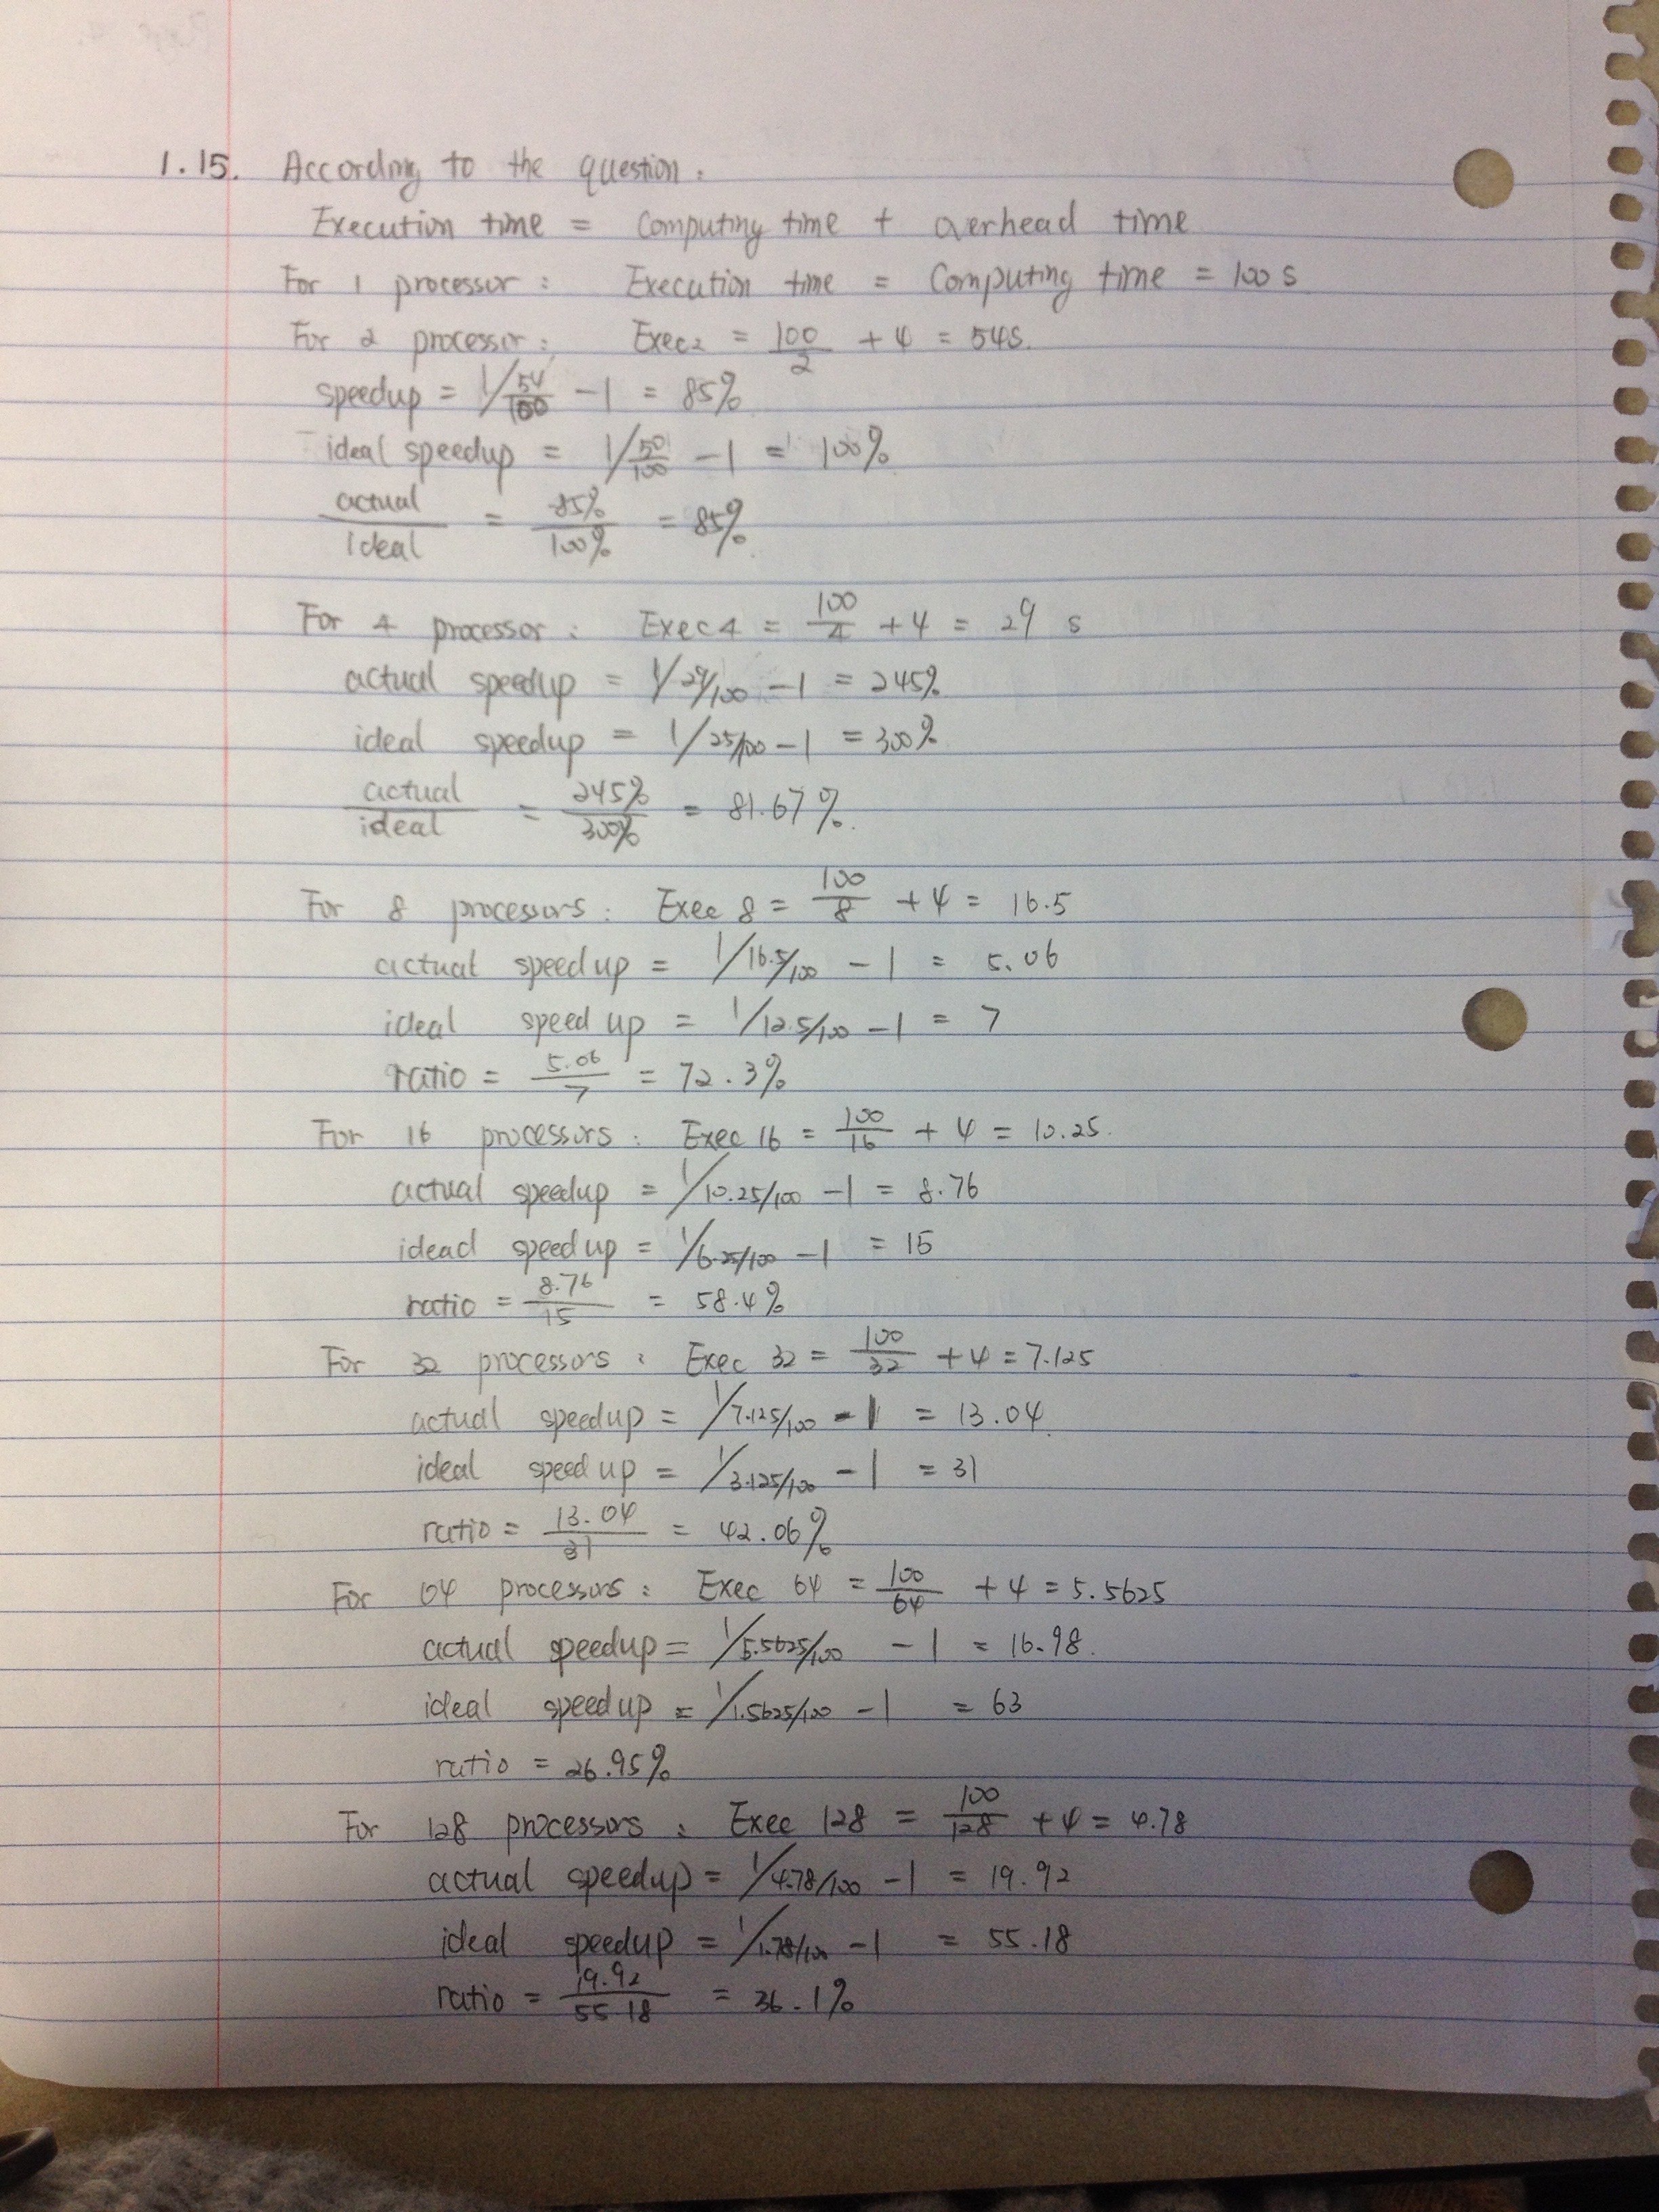 1.15. According to the question:
Execution time = Computing time + overhead time
For 1 processor: Execution time = Computing time = 100 s
For 2 processor: Exec2 = 100/2 + 4 = 54s.
speedup = 1/54/100 - 1 = 85%
ideal speedup = 1/50/100 - 1 = 100%
actual/ideal = 85%/100% = 85%
For 4 processor: Exec4 = 100/4 + 4 = 29 s
actual speedup = 1/29/100 - 1 = 245%
ideal speedup = 1/25/100 - 1 = 300%
actual/ideal = 245%/300% = 81.67%.
For 8 processors: Exec 8 = 100/8 + 4 = 16.5
actual speedup = 1/16.5/100 - 1 = 5.06
ideal speed up = 1/12.5/100 - 1 = 7
ratio = 5.06/7 = 72.3%
For 16 processors: Exec 16 = 100/16 + 4 = 10.25.
actual speedup = 1/10.25/100 - 1 = 8.76
idead speed up = 1/6.25/100 - 1 = 15
ratio = 8.76/15 = 58.4%
For 32 processors: Exec 32 = 100/32 + 4 = 7.125
actual speedup = 1/7.125/100 - 1 = 13.04.
ideal speed up = 1/3.125/100 - 1 = 31
ratio = 13.04/31 = 42.06%
For 64 processors: Exec 64 = 100/64 + 4 = 5.5625
actual speedup = 1/5.5625/100 - 1 = 16.98.
ideal speed up = 1/1.5625/100 - 1 = 63
ratio = 26.95%
For 128 processors: Exec 128 = 100/128 + 4 = 4.78
actual speedup = 1/4.78/100 - 1 = 19.92
ideal speedup = 1/1.78/100 - 1 = 55.18
ratio = 19.92/55.18 = 36.1%